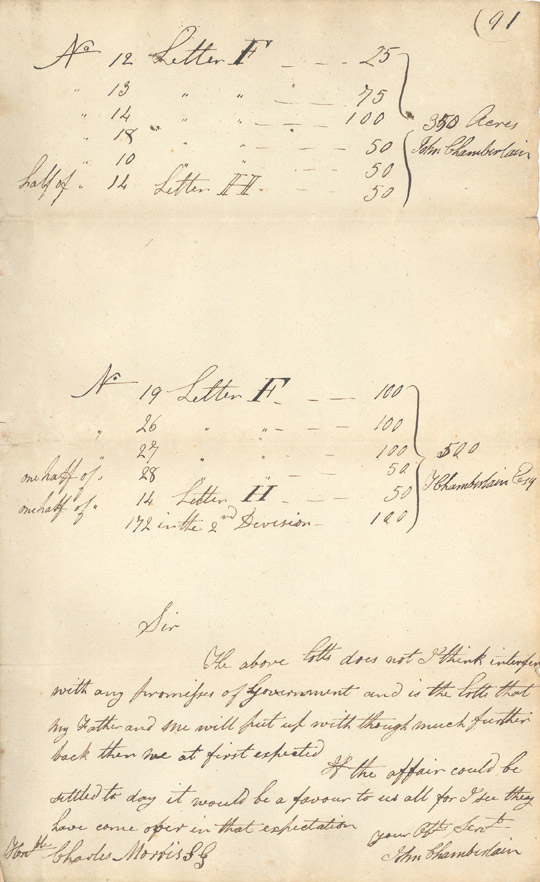 (91
No 12 Letter F - - - 25
" 13 " " - - - 75
" 14 " " - - - 100
" 18 " " - - - 50
" 10 " " - - - 50
half of " 14 Letter H - - - 50
350 Acres
John Chamberlain
No 19 Letter F - - - 100
" 26 " " - - - 100
" 27 " " - - - 100
one half of " 28 " " - - - 50
one half of " 14 Letter H - - - 50
172 in the 2nd Division - 100
500
J Chamberlain Esq
Sir
The above lotts does not I think interfere
with any promises of Government and is the lotts that
my Father and me will put up with though much further
back then we at first expected
If the affair could be
settled to day it would be a favour to us all for I see they
have come over in that expectation
your Obt Servt
Honble Charles Morris S G
John Chamberlain